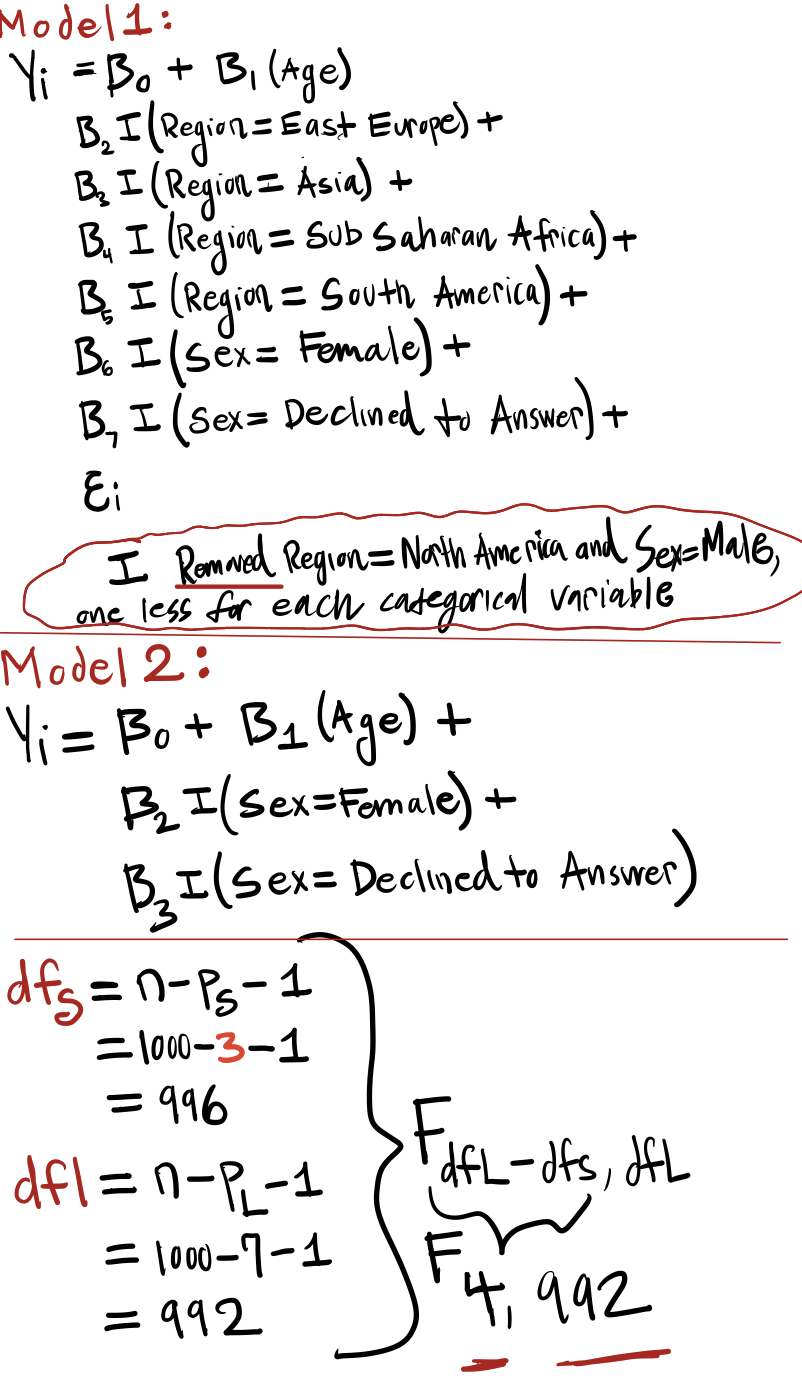 Model 1:
Yi = B0 + B1 (Age)
B2 I (Region = East Europe) +
B3 I (Region = Asia) +
B4 I (Region = Sub Saharan Africa) +
B5 I (Region = South America) +
B6 I (Sex = Female) +
B7 I (Sex = Declined to Answer) +
Ei
I Removed Region = North America and Sex = Male,
one less for each categorical variable
Model 2:
Yi = B0 + B1 (Age) +
B2 I (Sex = Female) +
B3 I (Sex = Declined to Answer)
dfs = n - Ps - 1
= 1000 - 3 - 1
= 996
dfl = n - PL - 1
= 1000 - 7 - 1
= 992
F dfL - dfs, dfL
F 4, 992